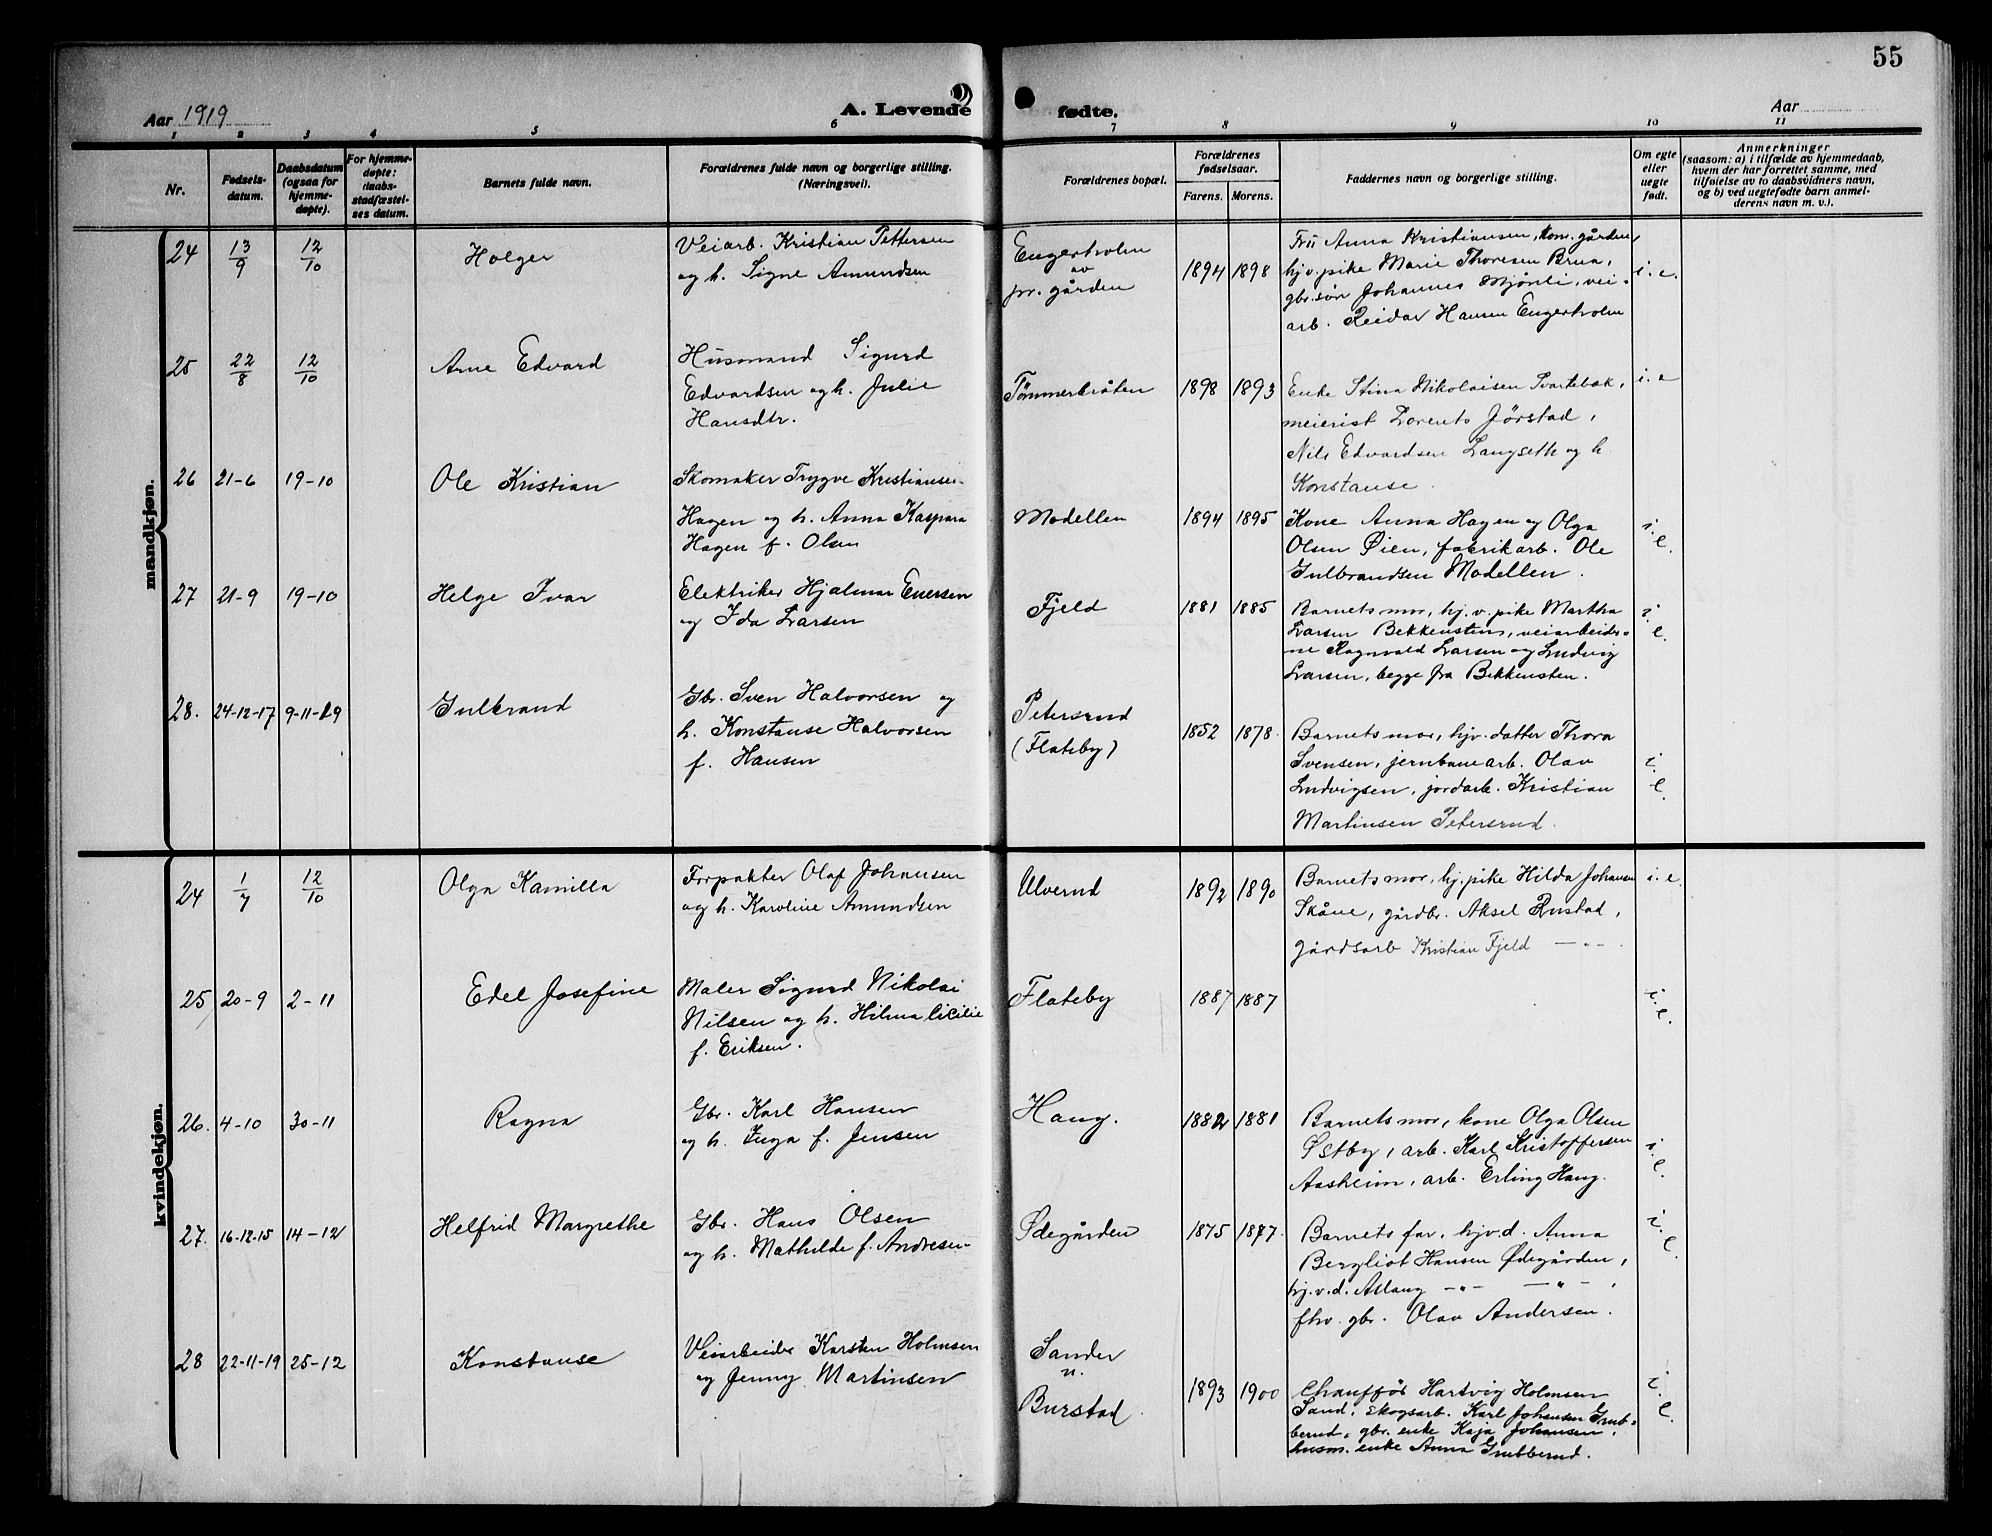 55
Aar 1919
A. Levende
fødte.
Aar
1 2 3 4 5 6 7 8 9 10 11
Nr.
Fødsels-
datum.
Daabsdatum
(ogsaa for
hjemme-
døpte).
For hjemme-
døpte:
daabs-
stadfæstel-
ses datum.
Barnets fulde navn.
Forældrenes fulde navn og borgerlige stilling.
(Næringsvei).
Forældrenes bopæl.
Forældrenes
fødselsaar.
Farens. Morens.
Faddernes navn og borgerlige stilling.
Om egte
eller
uegte
født.
Anmerkninger
(saasom: a) i tilfælde av hjemmedaab,
hvem der har forrettet samme, med
tilføielse av to daabsvidners navn,
og b) ved uegtefødte barn anmel-
derens navn m. v.).
mandkjøn.
24
13/9
12/10
Holger
Veiarb. Kristian Pettersen
og h. Signe Amundsen
Engerholm
av
pr. gården
1894 1898
Fru Anna Kristiansen, kom. gården,
hj.v. pike Marie Thoresen Brua,
gbr.søn Johannes Mjønli, vei-
arb. Reidar Hansen Engerholm
i. e.
25
22/8
12/10
Arne Edvard
Husmand Sigurd
Edvardsen og h. Julie
Hansdtr.
Tømmerbråten
1898 1893
Enke Stina Nikolaisen Svartebæk,
meierist Lorents Jørstad,
Nils Edvardsen Langseth og h.
Konstanse.
i. e
26
21-6
19-10
Ole Kristian
Skomaker Trygve Kristiansen
Hagen og h. Anna Kaspara
Hagen f. Olsen
Modellen
1894 1895
Kone Anna Hagen og Olga
Olsen Øien, fabrikarb. Ole
Gulbrandsen Modellen.
i. e.
27
21-9
19-10
Helge Ivar
Elektriker Hjalmar Enersen
og Ida Larsen
Fjeld
1881 1885
Barnets mor, hj.v. pike Martha
Larsen Bekkensten, veiarbeider-
ne Ragnvald Larsen og Ludvig
Larsen, begge fra Bekkensten.
i. e.
28.
24-12-17
9-11-19
Gulbrand
Gbr. Sven Halvorsen og
h. Konstanse Halvorsen
f. Hansen
Petersrud
(Flateby)
1852 1878.
Barnets mor, hjv. datter Thora
Svensen, jernbanearb. Olav
Ludvigsen, jordarb. Kristian
Martinsen Petersrud.
i. e.
kvindekjøn.
24
1/7
12/10
Olga Kamilla
Forpakter Olaf Johansen
og h. Karoline Amundsen
Ulverud
1892 1890
Barnets mor, hj. pike Hilda Johansen
Skåne, gårdbr. Aksel Rustad,
gårdsarb Kristian Fjeld — „ — .
i. e.
25
20-9
2-11
Edel Josefine
Maler Sigurd Nikolai
Nilsen og h. Hilma Cicilie
f. Eriksen.
Flateby
1887 1887
i. e.
26.
4-10
30-11
Ragna
Gbr. Karl Hansen
og h. Inga f. Jensen
Haug.
1882 1881
Barnets mor, kone Olga Olsen
Østby, arb. Karl Kristoffersen
Aasheim, arb. Erling Haug.
i. e.
27.
16-12-15
14-12
Helfrid Margrethe
Gbr. Hans Olsen
og h. Mathilde f. Andresen
Ødegården
1875 1877.
Barnets far, hjv.d. Anna
Bergliot Hansen Ødegården,
hj.v.d. Aslaug — „ — — „ — ,
fhv. gbr. Olav Andersen.
i. e.
28
22-11-19
25-12
Konstanse
Veiarbeider Karsten Holmsen
og Jenny Martinsen
Sander
n.
Burstad.
1893 1900
Chauffør Hartvig Holmsen
Sand, skogsarb. Karl Johansen Grub-
berud, gbr. enke Kaja Johansen,
husm. enke Anna Grubberud.
i. e.